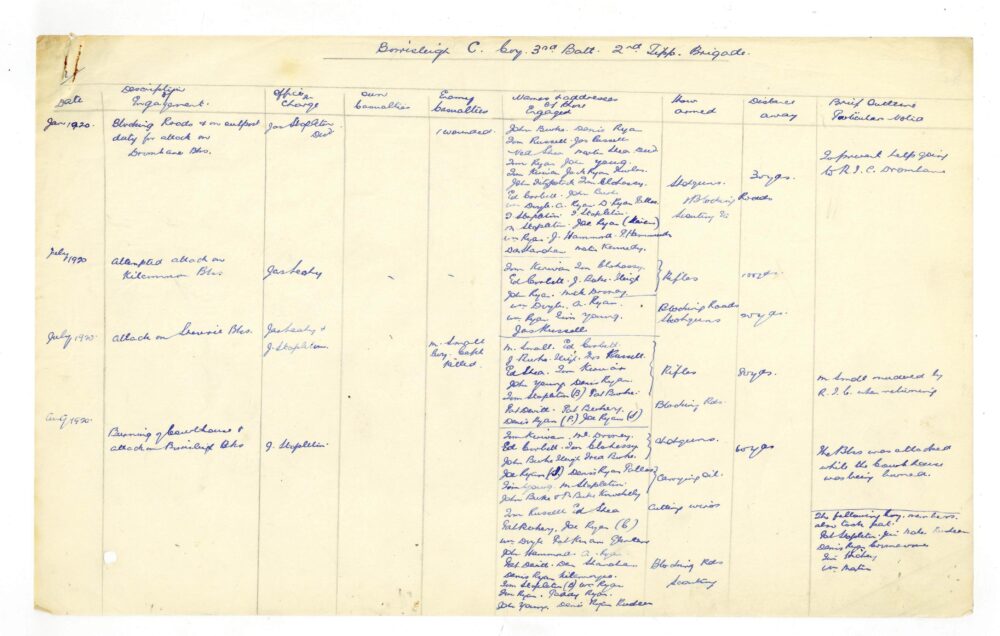 Borrisleigh C. Coy. 3rd Batt. 2nd Tipp. Brigade.
Date
Description of Engagement.
Officer in Charge
Own Casualties
Enemy Casualties
Names & addresses of those Engaged
How armed
Distance away
Brief Outline Particular Noted
Jan 1920.
Blocking Roads & on outpost
duty for attack on
Dromhane Bks.
Jas Stapleton
1 wounded.
John Burke. Denis Ryan
Tim Russell. Jas Russell
Ned Shea Martin Shea
Tim Ryan John Young.
Tim Kirwan Jack Ryan
John Fitzpatrick Tim Clohessy.
Ed Corbett. John Burke
Wm Doyle. A. Ryan D Ryan
J Stapleton. J Stapleton.
M Stapleton. Joe Ryan
Wm Ryan. J. Hammond. P Hammond
Dan Kennedy.
Shotguns.
Blocking Roads
Scouting Etc
30 yds.
To prevent help going
to R.I.C. Dromhane
July 1920
Attempted attack on
Kilcommon Bks
Jas Leahy
Tim Kirwan Tim Clohessy
Ed Corbett. J. Burke. Ileigh
John Ryan. Mick Droney
Wm Doyle. A. Ryan.
Wm Ryan Young.
Jas Russell
Rifles
Blocking Roads
Shotguns
100 yds.
20 yds.
July 1920
Attack on Bks.
Jas Leahy &
J. Stapleton.
M. Small
Coy. Capt
Killed.
M. Small. Ed Corbett.
J. Burke. Ileigh. Jas Russell
Ed Shea. Tim Kirwan
John Young. Denis Ryan.
Tim Stapleton (B) Pat Burke.
Pat Devitt. Pat Berkery.
Denis Ryan (P.) Joe Ryan (S)
Rifles
Blocking Rds.
80 yds.
M Small murdered by
R.I.C. when returning
Aug 1920
Burning of Courthouse &
attack on Borrisleigh Bks
J. Stapleton
Tim Kirwan. Ml. Droney.
Ed Corbett. Tim Clohessy
John Burke Ileigh Burke.
Joe Ryan (S) Denis Ryan
Tim Young. M Stapleton.
John Burke & P. Burke
Tim Russell Ed Shea
Pat Berkery. Joe Ryan (C)
Wm Doyle Pat Kinane
John Hammond. A. Ryan
Pat Devitt. Dan Shanahan
Denis Ryan
Tim Stapleton (B) Wm Ryan
Tim Ryan. Paddy Ryan.
John Young. Denis Ryan
Shotguns.
Carrying oil.
Cutting wires
Blocking Rds
Scouting
60 yds
The Bks was attacked
while the Courthouse
was being burned.
The following Coy. members.
also took part.
Pat Stapleton. Jim
Denis Ryan
Jim Hickey
Wm Martin